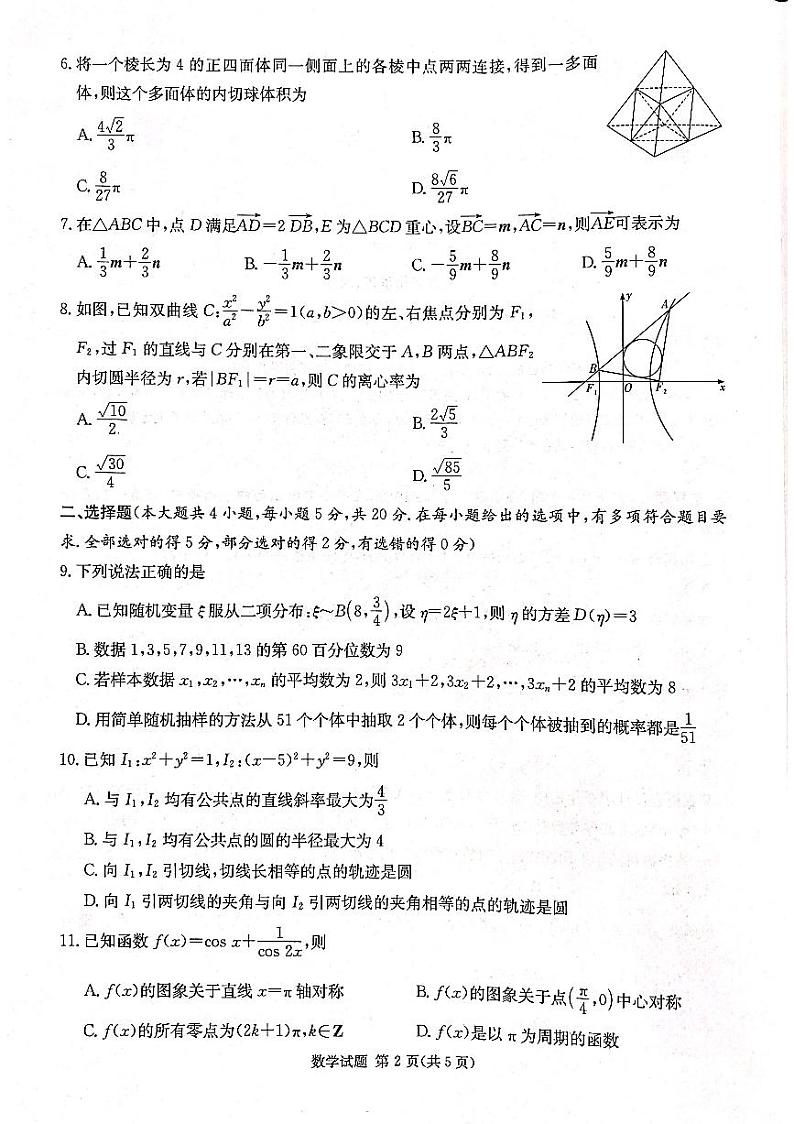 6.将一个棱长为 4 的正四面体同一侧面上的各棱中点两两连接,得到一多面
体,则这个多面体的内切球体积为
A. 4√2/3 π B. 8/3 π
C. 8/27 π D. 8√6/27 π
7.在△ABC 中,点 D 满足AD→=2 DB→,E 为△BCD 重心,设BC→=m,AC→=n,则AE→可表示为
A. 1/3 m+2/3 n B. −1/3 m+2/3 n C. −5/9 m+8/9 n D. 5/9 m+8/9 n
8.如图,已知双曲线 C:x²/a²−y²/b²=1(a,b>0)的左、右焦点分别为 F₁,
F₂,过 F₁ 的直线与 C 分别在第一、二象限交于 A,B 两点,△ABF₂
内切圆半径为 r,若|BF₁|=r=a,则 C 的离心率为
y
A
B
F₁ O F₂ x
A. √10/2 B. 2√5/3
C. √30/4 D. √85/5
二、选择题(本大题共 4 小题,每小题 5 分,共 20 分.在每小题给出的选项中,有多项符合题目要
求.全部选对的得 5 分,部分选对的得 2 分,有选错的得 0 分)
9.下列说法正确的是
A.已知随机变量 ξ 服从二项分布:ξ~B(8,3/4),设 η=2ξ+1,则 η 的方差 D(η)=3
B.数据 1,3,5,7,9,11,13 的第 60 百分位数为 9
C.若样本数据 x₁,x₂,…,xₙ 的平均数为 2,则 3x₁+2,3x₂+2,…,3xₙ+2 的平均数为 8
D.用简单随机抽样的方法从 51 个个体中抽取 2 个个体,则每个个体被抽到的概率都是1/51
10.已知 I₁:x²+y²=1,I₂:(x−5)²+y²=9,则
A.与 I₁,I₂ 均有公共点的直线斜率最大为4/3
B.与 I₁,I₂ 均有公共点的圆的半径最大为 4
C.向 I₁,I₂ 引切线,切线长相等的点的轨迹是圆
D.向 I₁ 引两切线的夹角与向 I₂ 引两切线的夹角相等的点的轨迹是圆
11.已知函数 f(x)=cos x+1/cos 2x,则
A. f(x)的图象关于直线 x=π 轴对称 B. f(x)的图象关于点(π/4,0)中心对称
C. f(x)的所有零点为(2k+1)π,k∈Z D. f(x)是以 π 为周期的函数
数学试题 第 2 页(共 5 页)